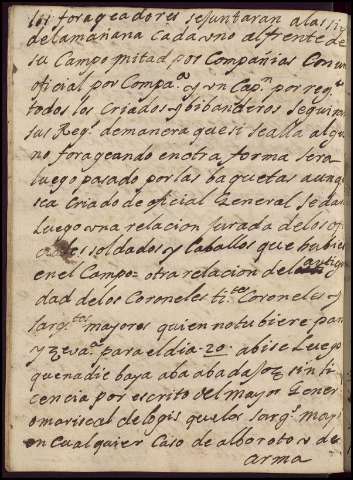 los forageadores se juntaran a las siy
de la mañana Cada uno al frente de
su Campo mitad por Compañias Con un
oficial por Compa.ª y un Cap.n por reg.to
todos los Criados y bibanderos seguiran
sus Reg.s de manera que si se alla algu
no forageando en otra forma sera
luego pasado por las baquetas aunq
sea Criado de oficial General se dara
Luego una relacion jurada de los ofi
ciales soldados y Caballos que hubiere
en el Campo = otra relacion de la antigu
dad de los Coroneles ti.tes Coroneles y
sarg.tos mayores quien no tubiere pan
y zevª. para el dia 20. abise Luego
que nadie baya a sin li
cencia por escrito del mayor Gener
o mariscal de logis que los sarg.s may
en cualquier Caso de alboroto u de
arma